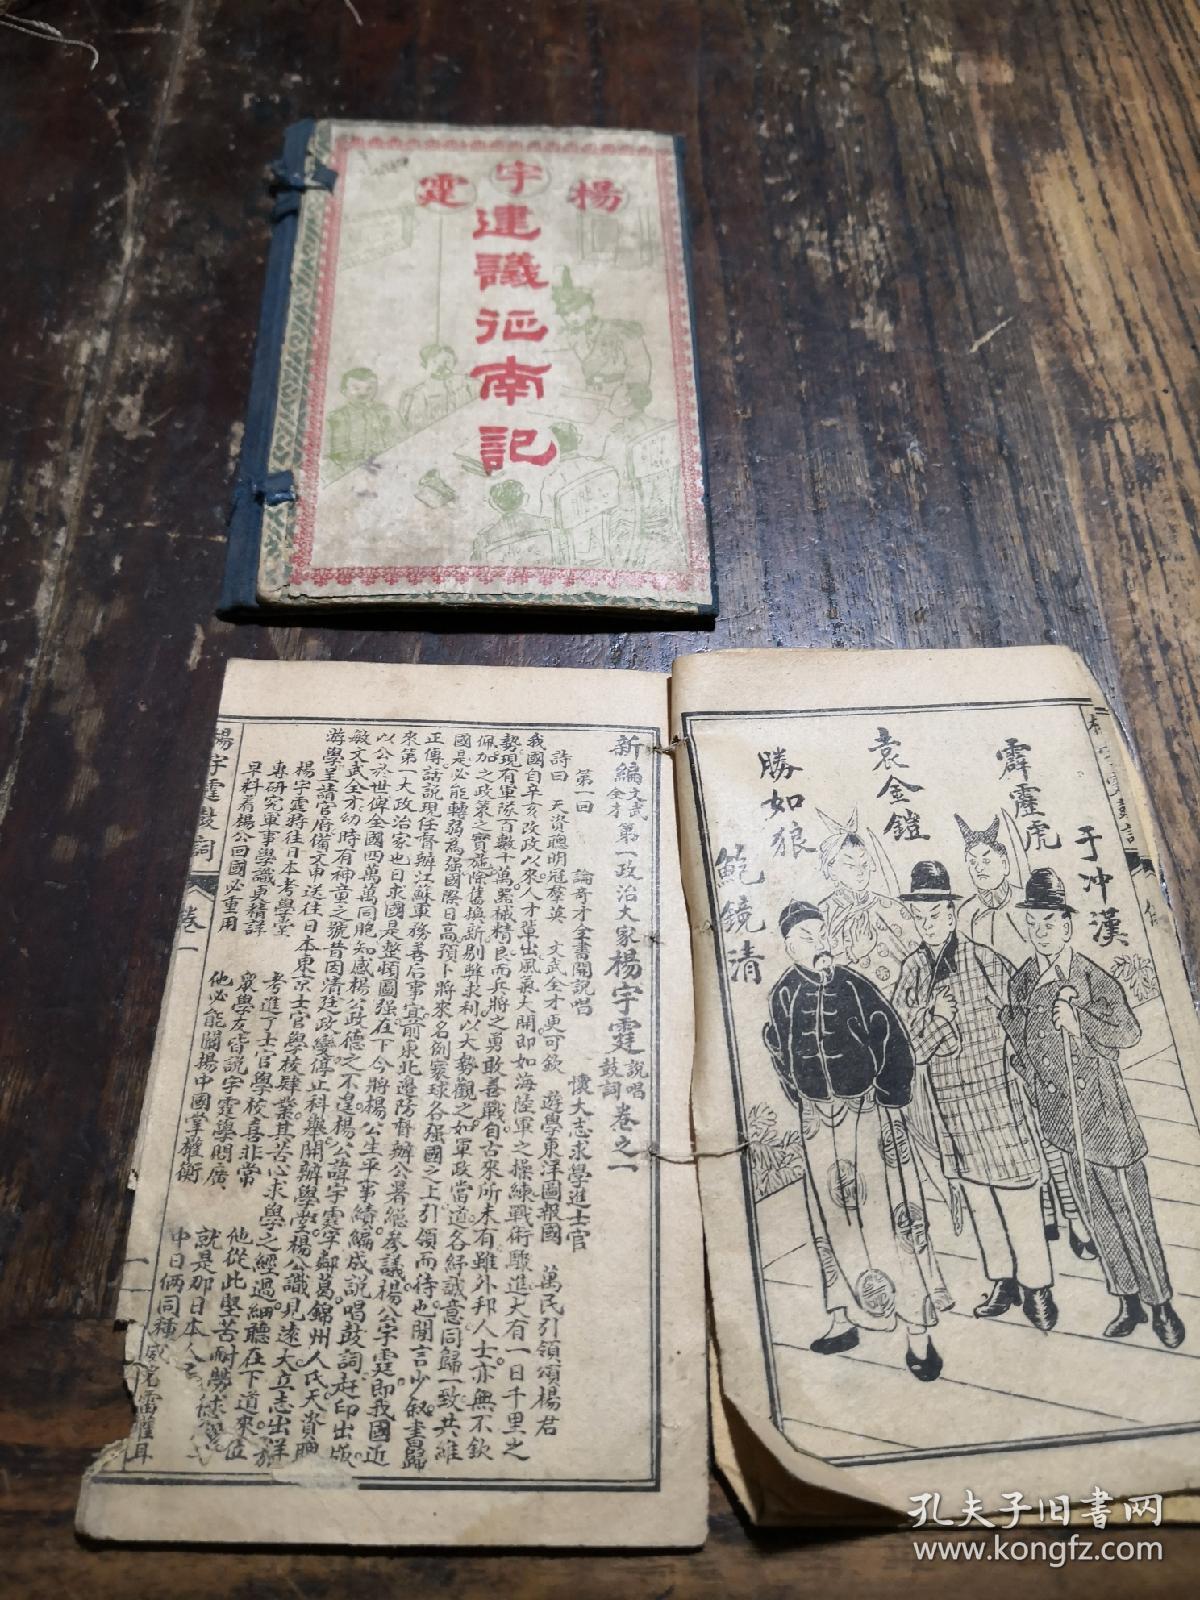 楊宇霆
建議征南記
霹靂虎
于冲漢
袁金鎧
勝如狼
鮑鏡清
新編文武全才第一政治大家楊宇霆說唱鼓詞卷之一
第一回 論奇才全書開說唱 懷大志求學進士官
詩曰 天資聰明冠羣英 文武全才更可欽 遊學東洋圖報國 萬民引領頌楊君
我國自辛亥改政以來人才輩出風氣大開即如海陸軍之操練戰術駿進大有一日千里之
勢現有軍隊百數十萬器械精良而兵將之勇敢善戰自古來所未有雖外邦人士亦無不欽
佩加之政策之實施除舊換新剔弊求利以大勢觀之如軍政當道各紓誠意同歸一致共維
國是必能轉弱為强國際日高預卜將來名例寰球各强國之上引領而待也閒言少叙書歸
正傳話說現任督辦江蘇軍務善后事宜前東北邊防督辦公署總參議楊公宇霆即我國近
來第一大政治家也日求國是整頓圖强在下今將楊公生平事績編成說唱鼓詞赶印出版
以公於世俾全國四萬萬同胞知感楊公政德之不遑楊公諱宇霆字鄰葛錦州人氏天資聰
敏文武全才幼時有神童之號昔因清廷政變停止科舉開辦學堂楊公識見遠大立志出洋
游學呈請官府備文申送往日本東京士官學校肄業其苦心求學之經過細聽在下道來
楊宇霆將往日本考學堂 考進了士官學校喜非常 他從此堅苦耐勞
專研究軍事學識更精詳 衆學友皆說宇霆學問廣 就是那日本人
早料着楊公回國必重用 他必能闡揚中國掌權衡 中日俩同種
楊宇霆鼓詞 卷一 一
孔夫子旧書网
www.kongfz.com